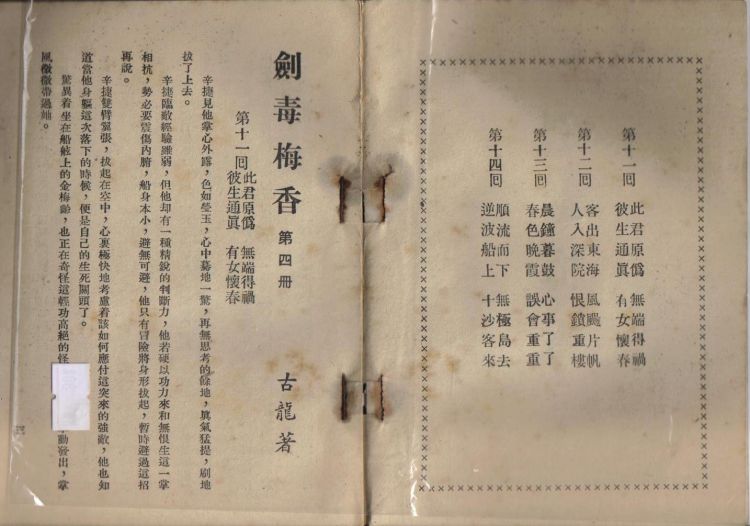 第十一回
此君原爲 無端得禍
彼生通眞 有女懷春
第十二回
客出東海 風颺片帆
人入深院 恨鎖重樓
第十三回
晨鐘暮鼓 心事了了
春色晚霞 誤會重重
第十四回
順流而下 無極島去
逆波船上 十沙客來
劍毒梅香 第四冊 古龍著
第十一回
此君原爲 無端得禍
彼生通眞 有女懷春
辛捷見他掌心外露,色如瑩玉,心中驀地一驚,再無思考的餘地,眞氣猛提,刷地
拔了上去。
辛捷臨敵經驗雖弱,但他却有一種精銳的判斷力,他若硬以功力來和無恨生這一掌
相抗,勢必要震傷內腑,船身本小,避無可避,他只有冒險將身形拔起,暫時避過這招
再說。
辛捷雙臂翼張,拔起在空中,心裏極快地考慮着該如何應付這突來的強敵,他也知
道當他身軀這次落下的時候,便是自己的生死關頭了。
驚異着坐在船舷上的金梅齡,也正在奇怪這輕功高絕的怪 動發出,掌
風微微帶過她。